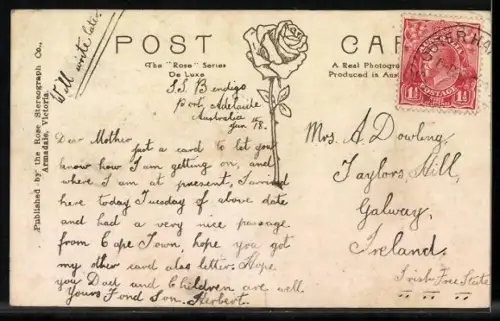 Will write later.
POST CARD
The "Rose" Series
De Luxe
A Real Photograph
Produced in Aust
Published by the Rose Stereograph Co.,
Armadale, Victoria.
POSTAGE
1½D 1½D
S.S. Bendigo
Port Adelaide
Australia
Jan
Dear Mother
just a card to let you
know how I am getting on, and
where I am at present, I arrived
here today Tuesday of above date
and had a very nice passage
from Cape Town, hope you got
my other card also letter. Hope
you Dad and Children are well
Yours Fond Son. Herbert.
Mrs. A. Dowling,
Taylors Hill,
Galway,
Ireland.
Irish Free State